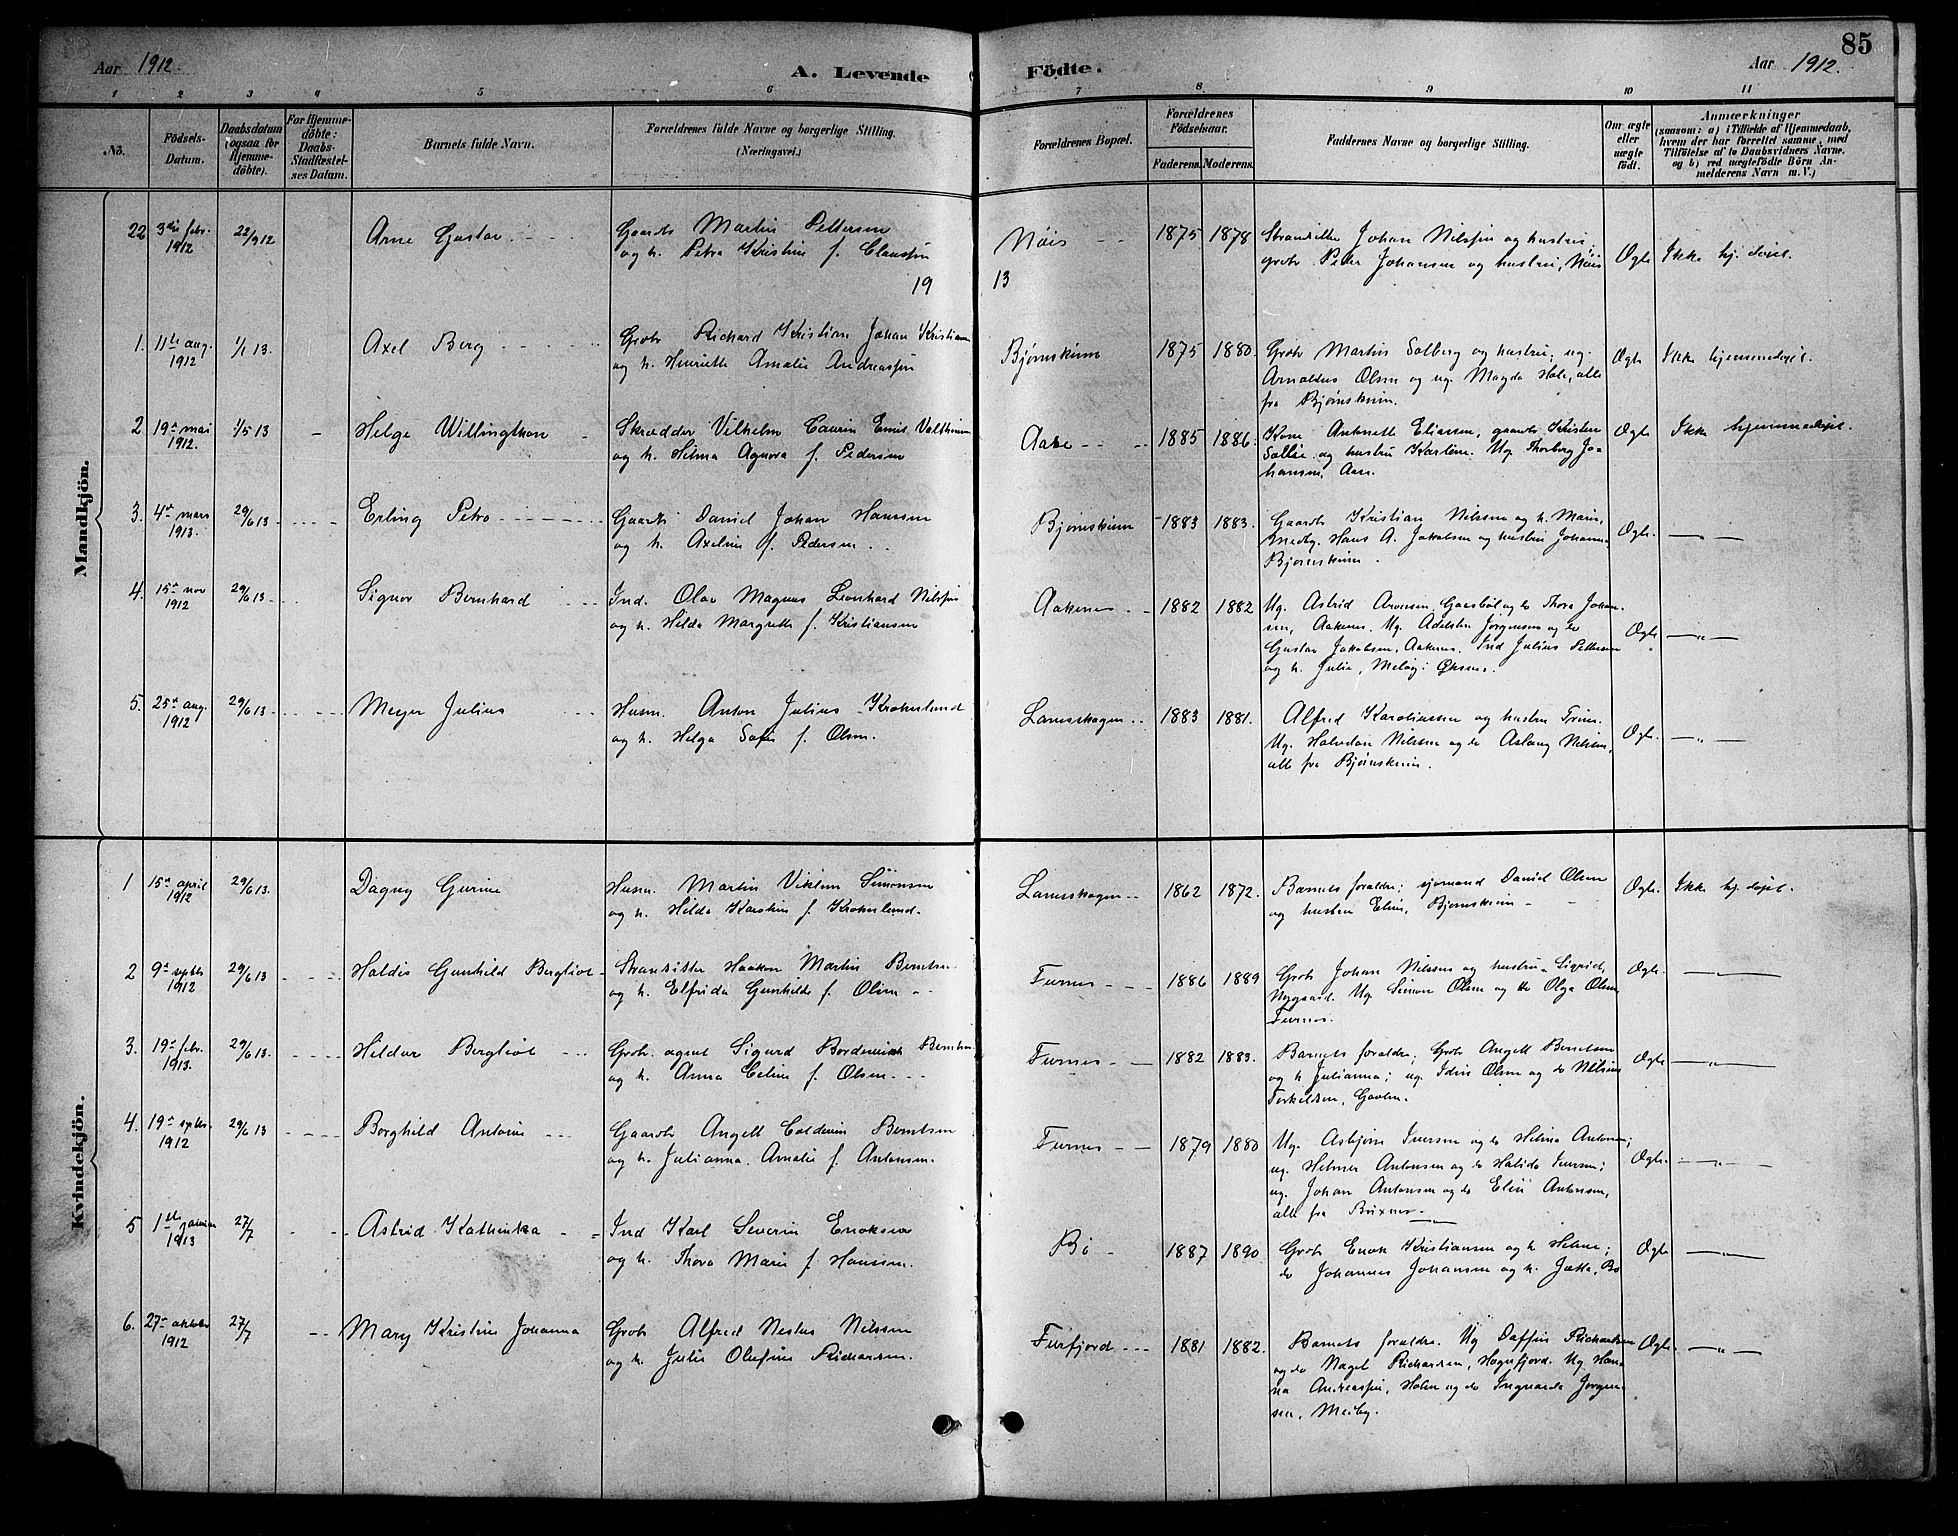 85
Aar 1912.
A. Levende Födte.
Aar 1912.
1 2 3 4 5 6 7 8. 9 10 11
No.
Födsels-Datum.
Daabsdatum (ogsaa for Hjemme-döbte).
For Hjemme-döbte: Daabs-Stadfestel-ses Datum.
Barnets fulde Navn.
Forældrenes fulde Navne og borgerlige Stilling.
(Næringsvei.)
Forældrenes Bopæl.
Forældrenes Födselsaar.
Faderens. Moderens.
Faddernes Navne og borgerlige Stilling.
Om ægte eller uægte födt.
Anmærkninger
(saasom: a) i Tilfælde af Hjemmedaab,
hvem der har forrettet samme, med
Tilföielse af to Daabsvidners Navne.
og b) ved uægtefödte Börn An-
melderens Navn m. V.)
Mandkjön.
22 3die febr. 1912 22/9 12 Arne Gustav
Gaardb Martin Pettersen
og h. Petra Kristine f. Claussen
19
Nöis 1875 1878
13
Strandsitter Johan Nilssen og hustru;
grbr Peder Johansen og hustru, Nöis
Ægte Ikke hj. døpt.
1. 11te aug. 1912 1/1 13. Axel Berg
Grbr Richard Kristian Johan Kristian
og h. Henriette Amalie Andreassen
Bjørnskinn 1875 1880.
Grbr Martin Solberg og hustru; ug.
Arnoldus Olsen og ug. Magda Hole, alle
fra Bjørnskinn.
Ægte Ikke hjemmedøpt.
2 19de mai 1912. 1/5 13 Helge Willingthon
Skrædder Vilhelm Laurin Emil
og h. Helma Agnora f. Pedersen
Aase 1885 1886.
Kone Antonette Eliassen, gaardb Kristen
Sollie og hustru Karoline. Ug Thorberg Jo-
hansen, Aase.
Ægte Ikke hjemmedøpt.
3. 4de mars 1913. 29/6 13 Erling Petro
Gaardb Daniel Johan Hanssen
og h. Axeline f. Pedersen
Bjørnskinn 1883 1883.
Gaardb Kristian Nilssen og h. Marie,
Medby. Hans A. Jakobsen og hustru Johanna,
Bjørnskinn.
Ægte. — " —
4. 15de nov 1912 29/6 13 Signor Bernhard
Ind. Olav Magnus Leonhard Nilssen
og h. Hilda Margrethe f. Kristiansen
Aakenes 1882 1882
Ug. Astrid Arnesen, Gaasbøl og do Thora Johan-
sen, Aakenes. Ug. Adelsten Jørgensen og do
Gustav Jakobsen, Aakenes. Ind Julius Pettersen
og h. Julie, Meløy i Øksnes.
Ægte — " —
5. 25de aug. 1912 29/6 13 Meyer Julius
Husm. Anton Julius Krokenlund
og h. Helga Sofie f. Olsen.
Lanesskogen 1883 1881.
Alfred Karoliussen og hustru Trine.
Ug. Halvdan Nilssen og do Aslaug Nilssen,
alle fra Bjørnskinn.
Ægte. — " —
Kvindekjön.
1 15de april 1912 29/6 13. Dagny Gurine
Husm. Martin Viktem Simonsen
og h. Hilda Karstine f. Krokenlund.
Lanesskogen 1862 1872.
Barnets foraldre; sjømand Daniel Olsen
og hustru Eline, Bjørnskinn
Ægte. Ikke hj. døpt.
2 9de septbr 1912 29/6 13 Haldis Gunhild Bergliot
Strandsitter Haakon Martin Berntsen
og h. Elfrida Gunhilde f. Olsen
Furnes 1886 1889
Grbr Johan Nilssen og hustru Sigrid,
Nygaard. Ug Simon Olsen og do Olga Olsen,
Furnes.
Ægte. — " —
3. 19de febr. 1913. 29/6 13. Hildur Bergliot
Grbr. agent Sigurd Berntsen
og h. Anna Celine f. Olsen
Furnes 1882 1883.
Barnets foraldre; Grbr Angell Berntsen
og h. Julianna; ug. Idin Olsen og do Nilsine
Torkildsen, Gavlen.
Ægte — " —
4. 19de septbr. 1912 29/6 13 Borghild Antonie
Gaardb Angell Berntsen
og h. Julianna Amalie f. Antonsen.
Furnes 1879 1880
Ug. Asbjørn Iversen og do Helma Antonsen;
ug. Helmer Antonsen og do Halida Iversen;
ug. Johan Antonsen og do Elise Antonsen,
alle fra Buknes.
Ægte. — " —
5 1ste januar 1913 27/7 Astrid Kathinka
Ind Karl Severin Enoksen
og h. Thora Marie f. Hanssen.
Bö 1887 1890
Grbr Enok Kristiansen og h Helene;
do Johannes Johansen og h. Jetta, Bö
Ægte — " —
6. 27de oktober 1912 27/7 Mary Kristine Johanna
Grbr Alfred Nestus Nilssen
og h. Julie Olufine Richardsen.
Furfjord 1881 1882.
Barnets foraldre. Ug Daffin Richardsen
og do Nagel Richardsen, Hognfjord. Ug Han-
na Andreassen, Holm og do Ingvarda Jørgen-
sen, Meiby.
Ægte. — " —